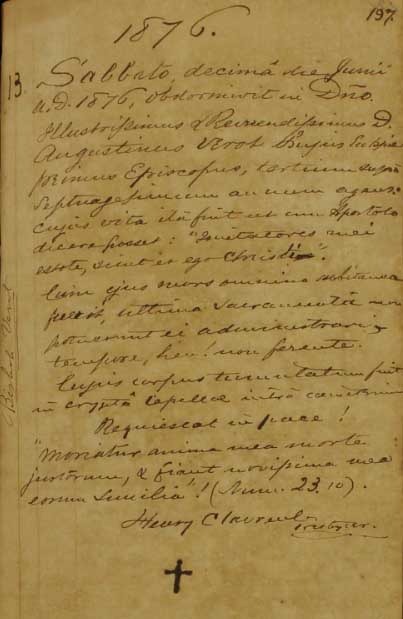 197.
1876.
13. Sabbato, decimâ die Junii
A.D. 1876, Obdormivit in Dño.
Illustrissimus & Reverendissimus D.
Augustinus Verot hujus Ecclesiæ
primus Episcopus, tertium supra
septuagesimum annum agens;
cujus vita ita fuit ut cum Apostolo
dicere posset: "Imitatores mei
estote, sicut et ego Christi".
Cum ejus mors omnino subitanea
fuerit, ultima Sacramenta non
potuerunt ei administrari,
tempore, heu! non ferente.
Cujus corpus tumulatum fuit
in cryptâ Capellæ intra cœmeterium
Requiescat in pace!
"Moriatur anima mea morte
justorum, & fiant novissima mea
eorum similia"! (Num. 23.10).
Henry Clavreul
Presbyter.
Bishop Verot